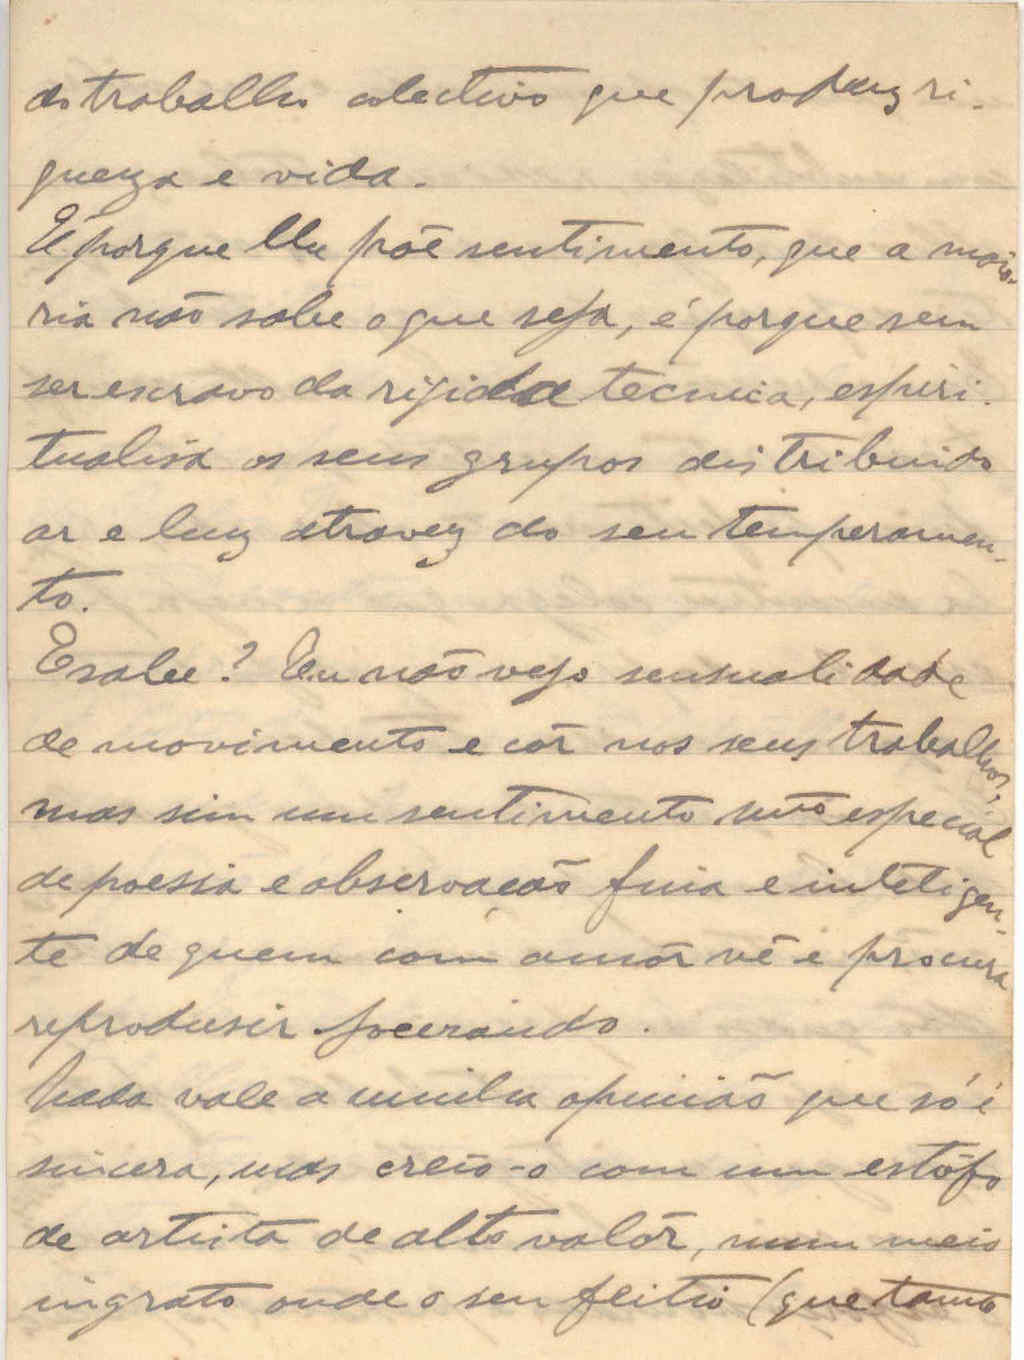 do trabalho colectivo que produz ri-
queza e vida.
É porque lhe põe sentimento, que a maio-
ria não sabe o que seja, é porque sem
ser escravo da rigida tecnica, espiri-
tualisa os seus grupos distribuindo
ar e luz atravez do seu temperamen-
to.
E sabe? Eu não vejo sensualidade
de movimento e côr nos seus trabalhos,
mas sim um sentimento mto especial
de poesia e observação fina e inteligen-
te de quem com amôr vê e procura
reproduzir
Nada vale a minha opinião que só é
sincera, mas creio-o com um estôfo
de artista de alto valôr, num meio
ingrato onde o seu feitio (que tanto